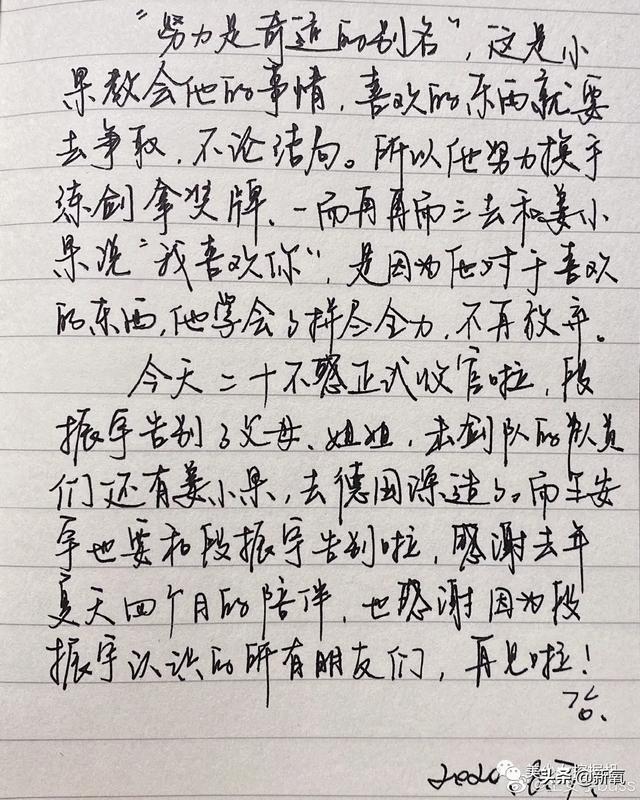 “努力是奇迹的别名”，这是小
果教会他的事情，喜欢的东西就要
去争取，不论结局。所以他努力换手
练剑拿奖牌、一而再再而三去和姜小
果说“我喜欢你”，是因为他对于喜欢
的东西，他学会了拼尽全力，不再放弃。
今天二十不惑正式收官啦，段
振宇告别了父母、姐姐，击剑队的队员
们还有姜小果，去德国深造了。而王安
宇也要和段振宇告别啦，感谢去年
夏天四个月的陪伴，也感谢因为段
振宇认识的所有朋友们，再见啦！
2020
头条@新氧